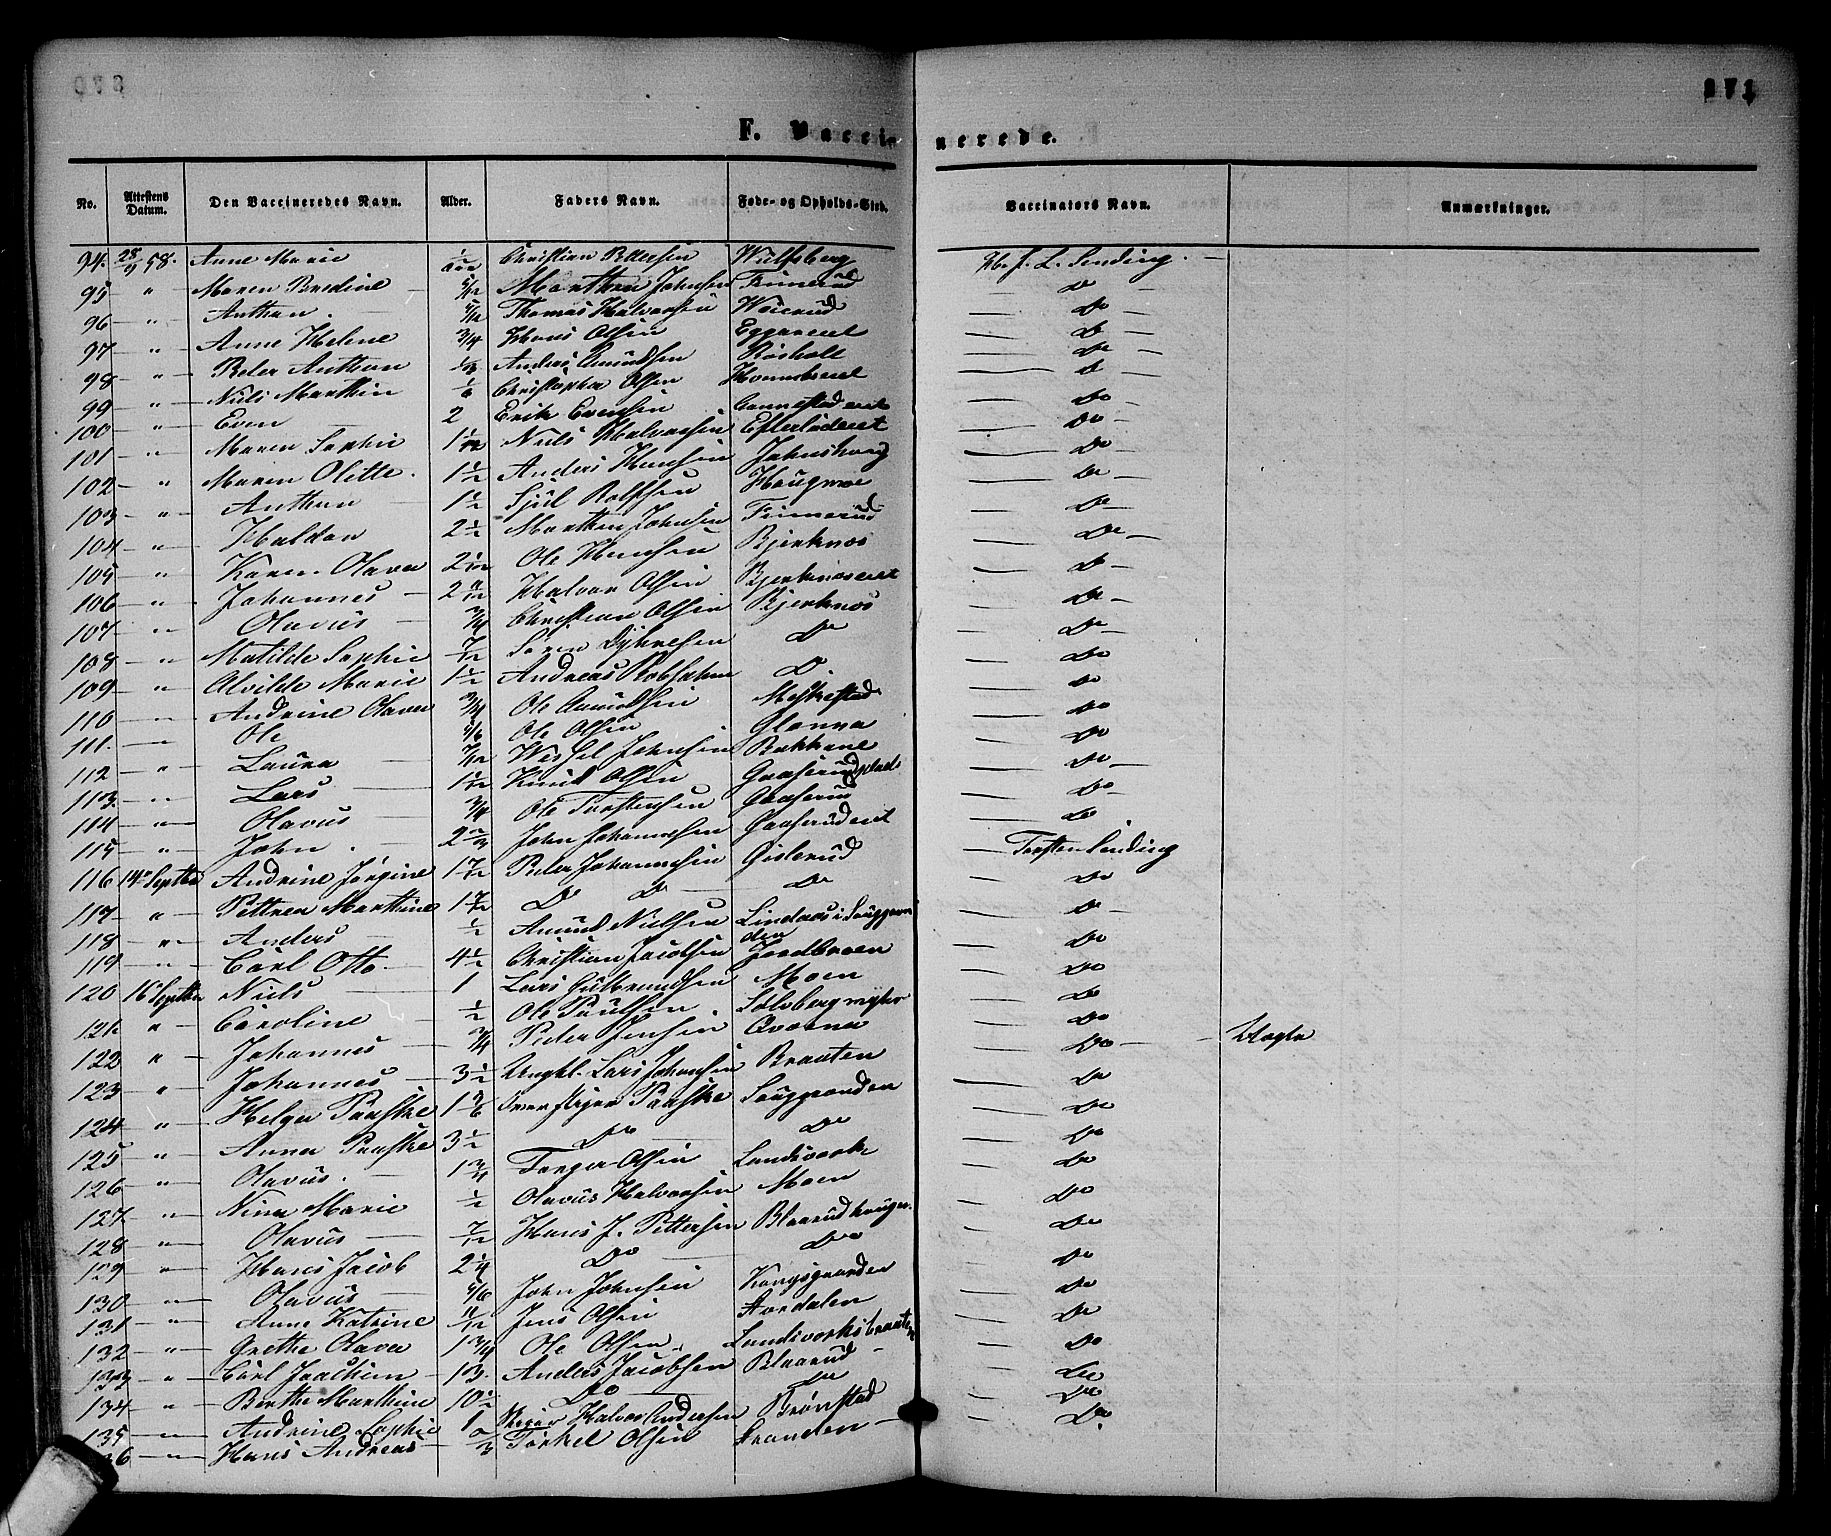 271
F. Vaccinerede.
No. Attestens Datum. Den Vaccineredes Navn. Alder. Faders Navn. Føde- og Opholds-Sted. Vaccinators Navn. Anmærkninger.
94. 28/9 58. Anne Marie Christian Pettersen Wulfsberg L. Sending.
95 " Maren Bredine 5/12 Marthin Johnsen Finnerud Do
96 " Anthon. 5/12 Thomas Halvorsen Do
97 " Anne Helene 3/4 Hans Olsen Eggareiet Do
98 " Peder Anthon 1/3 Anders Amundsen Røsholt Do
99 " Niels Marthin 1/6 Christopher Olsen Do
100 " Even 2 Erik Evensen Do
101 " Maren Sophie Niels Halvorsen Efterlødeiet Do
102 " Maren Olette. 1 1/2 Anders Hansen Do
103 " Anthon 1 1/2 Sjul Rolfsen Haugmoe Do
104 " Haldan 2 1/2 Marthin Johnsen Finnerud Do
105 " Karen Olava Ole Hansen Bjerknøs Do
106 " Johannes Halvor Olsen Bjerknøseiet Do
107 " Olavus 3/4 Christian Olsen Bjerknøs Do
108 " Matilde Sophie 7/12 Søren Dykresen Do Do
109 " Alvilde Marie 1 1/2 Andreas Robsahm Do Do
110 " Andrine Olava 3/4 Ole Amundsen Do
111. " Ole 5/6 Ole Olsen Glænna Do
112 " Laura 7/12 Wessel Johnsen Bakkane Do
113 " Lars 1 1/2 Knud Olsen Gaaserudplads Do
114 " Olavus 3/4 Ole Torstensen Gaaserud Do
115 " John. 2 2/3 John Johannesen Gaaserudeiet Do
116 14de Septbr Andrine Jørgine 1 7/12 Peder Johannesen Gislerud Torsten Sending
117 " Pettrea Marthine 1 7/12 Do Do Do Do
118 " Anders 1/2 Amund Nielsen Lindaas i Snuggerunden Do
119 " Carl Otto 4 1/2 Christian Jacobsen Do
120 16 Septbr Niels 1 Lars Gulbrandsen Moen Do
121. " Caroline 1/2 Ole Paulsen Sølvbergmyhr Do
122 " Johannes 3/4 Peder Jensen Qværna Do
123 " Johannes 3 1/2 Ungkl. Lars Johansen Braaten Do Uægte
124 " Helga Paaske 1 5/6 Overstiger Paaske Do
125 " Anna Paaske 3 1/2 Do Do Do
126 " Olavus. 1 3/4 Torger Olsen Do
127 " Nina Marie 1/2 Olavus Halvorsen Moen Do
128 " Olavus 7/12 Hans J. Pettersen Blaarudhauger. Do
129 " Hans Jacob 2 1/4 Do Do Do
130 " Olavus 5/6 John Johnsen Kongsgaarden Do
131 " Anne Katrine 11/12 Jens Olsen Aardalen Do
132 " Grethe Olava 1 3/4 Ole Olsen. Do
133 " Carl Joachim 13. Anders Jacobsen Blaarud Do
134 " Berthe Marthine 10 1/2 Do Do Do
135 " Andrine Sophie 1 Halvor Andersen Brønstad Do
136 " Hans Andreas 2/3 Torkel Olsen Stranden